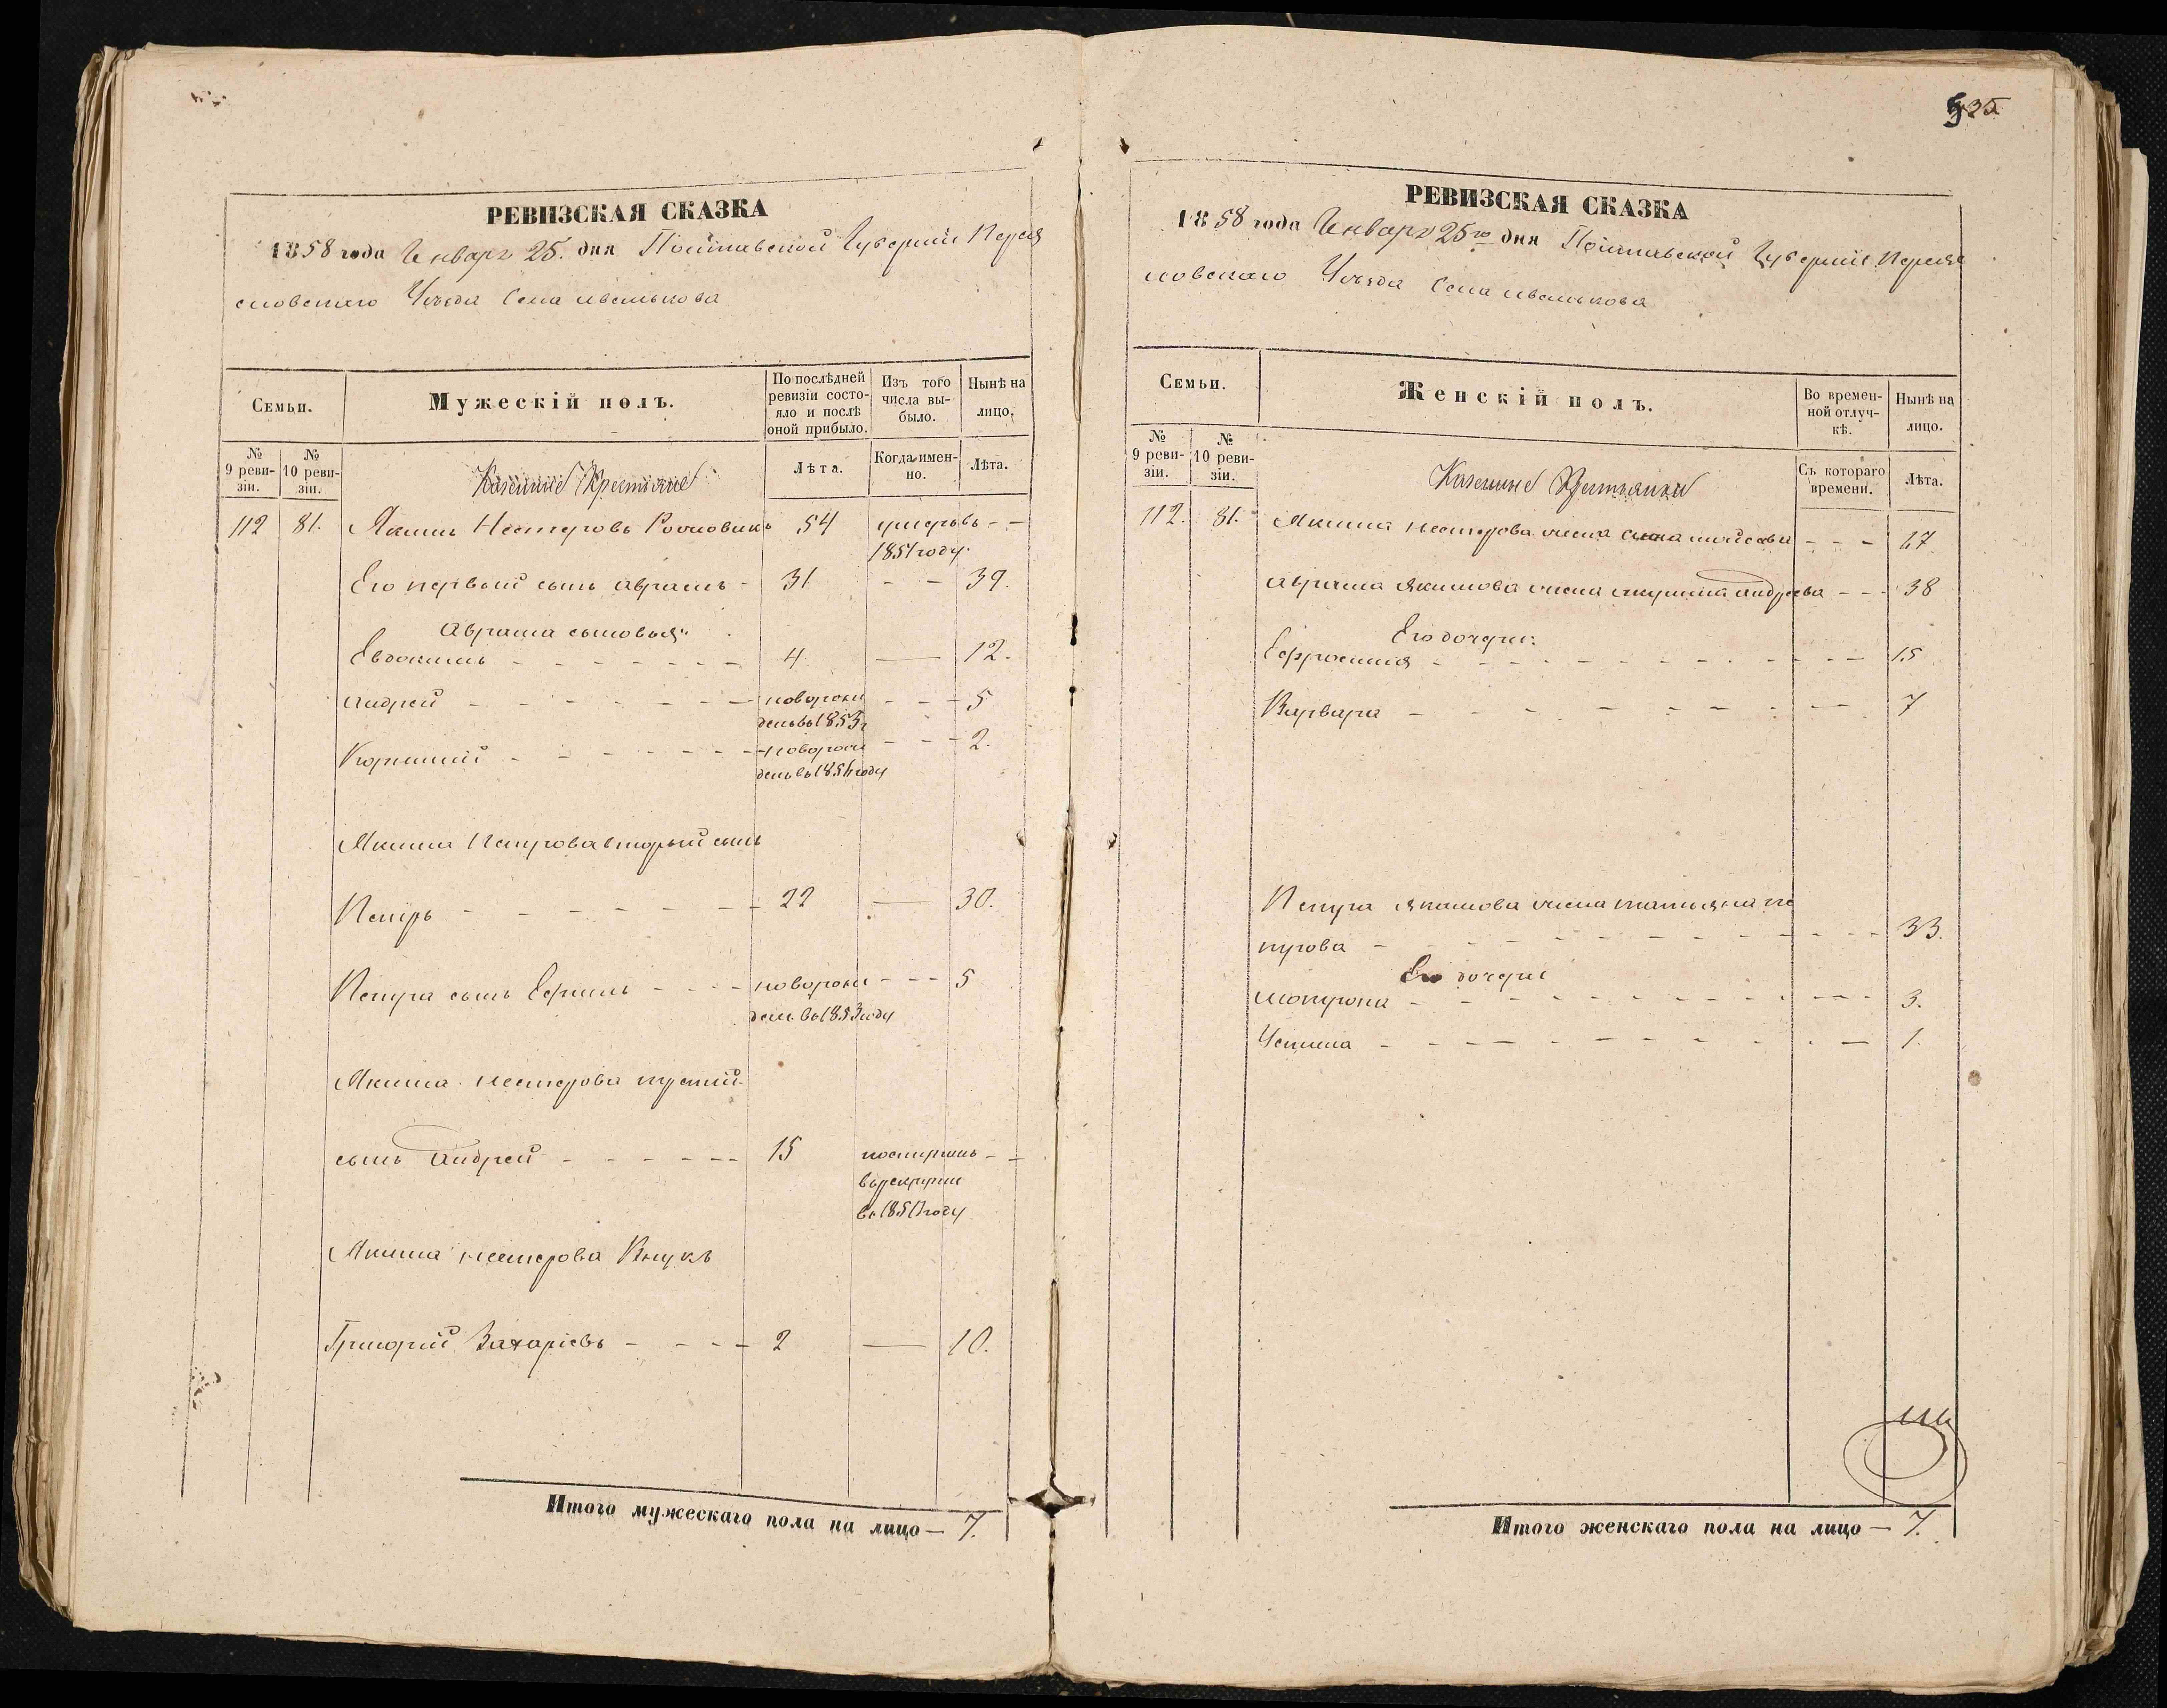 РЕВИЗСКАЯ СКАЗКА
1858 года Января 25. дня Полтавской Губерніи Перея
словскаго Уезда Села
Семьи.
Мужескій полъ.
По послѣдней ревизіи состо-
яло и послѣ
оной прибыло.
Изъ того
числа вы-
было.
Нынѣ на
лицо.
№
9 реви-
зіи.
№
10 реви-
зіи.
Казенные Крестьяне
Лѣта.
Когда имен-
но.
Лѣта.
112 81. Якимъ Нестеровъ 54 умеръ въ - -
1851 году.
Его первый сынъ Аврамъ - 31 - - 39.
Аврама сыновья:
Евдокимъ - - - - - - - 4 — 12.
Андрей - - - - - - - новорож - - - 5
денъ въ 1853 г
Корнилій - - - - - - - новорож - - - 2.
денъ въ 1856 году
Якима Нестрова вторый сынъ
Петръ - - - - - - - 22 — 30.
Петра сынъ Ефимъ - - - - новорож - - - 5
денъ въ 1853 году
Якима нестерова третій
сынъ Андрей - - - - - - 15 поступилъ - -
въ рекруты
въ 1851 году
Якима нестерова Внукъ
Григорій Захаріевъ - - - - 2 — 10.
Итого мужескаго пола на лицо — 7.
535
РЕВИЗСКАЯ СКАЗКА
1858 года Января 25го дня Полтавской Губерніи Перея
словскаго Уезда Села
Семьи.
Женскій полъ.
Во времен-
ной отлуч-
кѣ.
Нынѣ на
лицо.
№
9 реви-
зіи.
№
10 реви-
зіи.
Казенные Крестьянки
Съ котораго
времени.
Лѣта.
112. 81. Якима нестерова жена - - - 67.
Аврама Якимова жена Андреева - - - 38
Его дочери:
Ефросинія - - - - - - - - - - 15
Варвара - - - - - - - - - 7
Петра Якимова жена татьяна пе
трова - - - - - - - - - - 33.
Его дочери
Мотрона - - - - - - - - - - 3.
Устина - - - - - - - - - - 1.
Итого женскаго пола на лицо — 7.